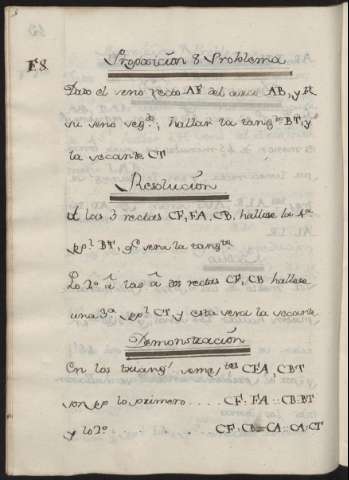 F.8.
Proposicion 8 Problema
Dato el seno recto AF del arco AB, y
su seno seg.do, hallar la tang.te BT, y
la secante CT
Resolucion
A las 3 rectas CF, FA, CB, hallese la 4.a
pp.l BT, y sera la tang.te
Lo 2.o a las rectas CF, CB hallese
una 3.a pp.l CT, y esta sera la secante
Demonstracion
En los triang.s seme.tes CFA, CBT
son pp lo primero .... CF: FA :: CB: BT
y lo 2.o CF: CB = CA: CA: CT